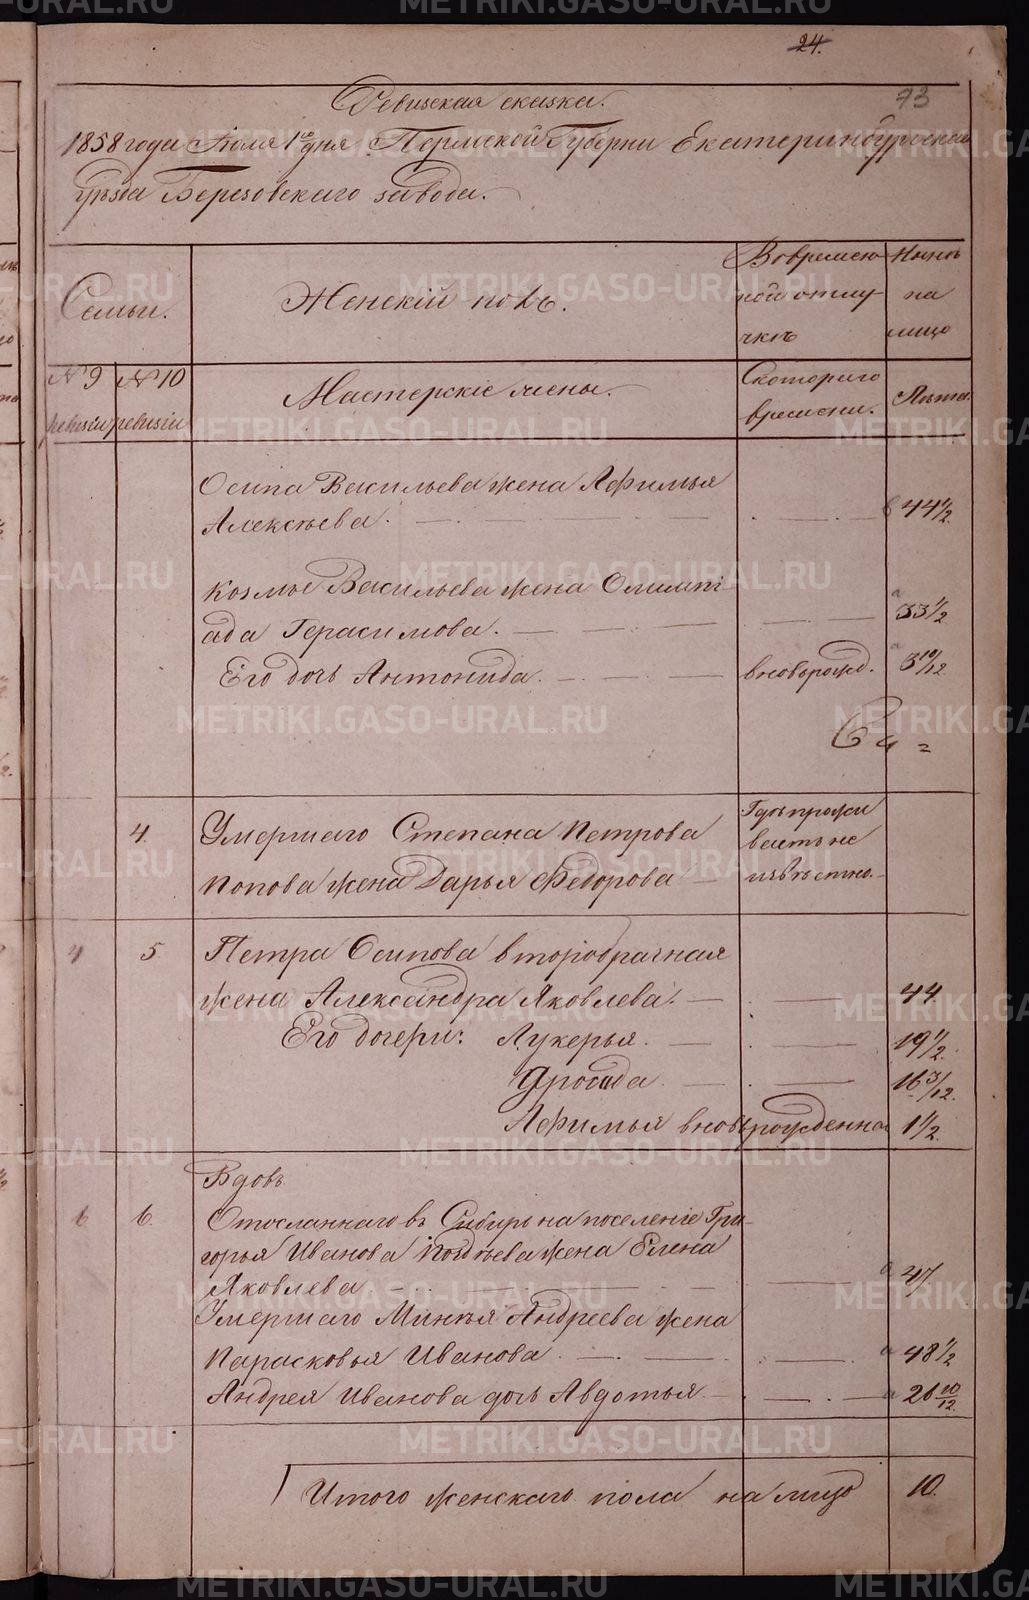 24.
73
Ревизская сказка.
1858 года Июля 1го дня Пермской Губернии Екатеринбургскаго
уѣзда Березовскаго завода.
Семьи.
Женскій полъ.
Во времен
ной отлу
чкѣ
Нынѣ
на
лицо
№ 9
ревизіи
№ 10
ревизіи
Мастерскіе члены.
Скотораго
времени.
Лѣта.
Осипа Васильева жена Афимья
Алексѣева. 44 1/2.
Козмы Васильева жена Олимпі
ада Герасимова. 33 1/2
Его дочь Антонида. вновьрожд. 3 10/12
4. Умершаго Степана Петрова
Попова жена Дарья Федорова
Гдѣ прожи
ваетъ не
извѣстно.
4 5. Петра Осипова второбрачная
жена Александра Яковлева. 44.
Его дочери: Лукерья. 19 1/2.
16 3/12.
Афимья вновьрожденна 1 1/2.
Вдовъ
6 6. Отосланнаго въ Сибирь на поселеніе Гри
горья Иванова жена Елена
Яковлева 47.
Умершаго Минѣя Андреева жена
Парасковья Иванова. 48 1/2
Андрея Иванова дочь Авдотья 26 10/12.
Итого женскаго пола на лицо 10.
METRIKI.GASO-URAL.RU